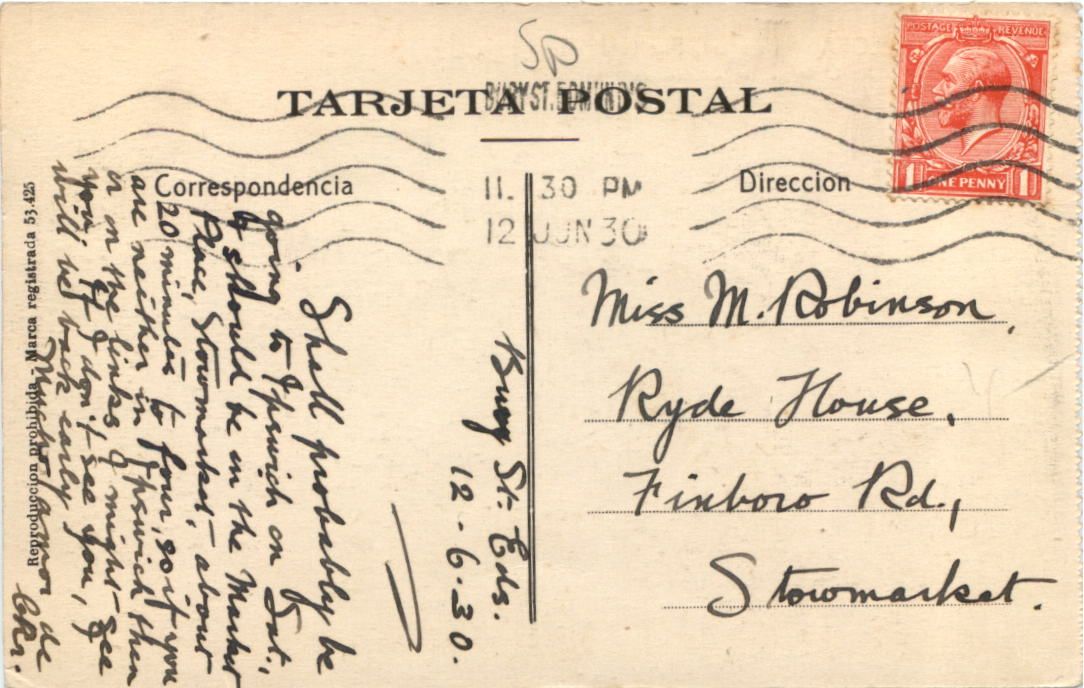 SP
BURY ST. EDMUNDS
TARJETA POSTAL
POSTAGE REVENUE
1 ONE PENNY 1
11. 30 PM
12 JUN 30
Correspondencia
Direccion
Bury St. Eds.
12-6-30.
Shall probably be
going to Ipswich on Sat.,
& should be in the Market
Place, Stowmarket, about
20 minutes to four, so if you
are neither in Ipswich then
or on the links I might see
you; if I don't see you, I
will be back early
Mucho amor de
Miss M. Robinson,
Ryde House,
Finboro Rd.,
Stowmarket.
Reproduccion prohibida - Marca registrada 53.425